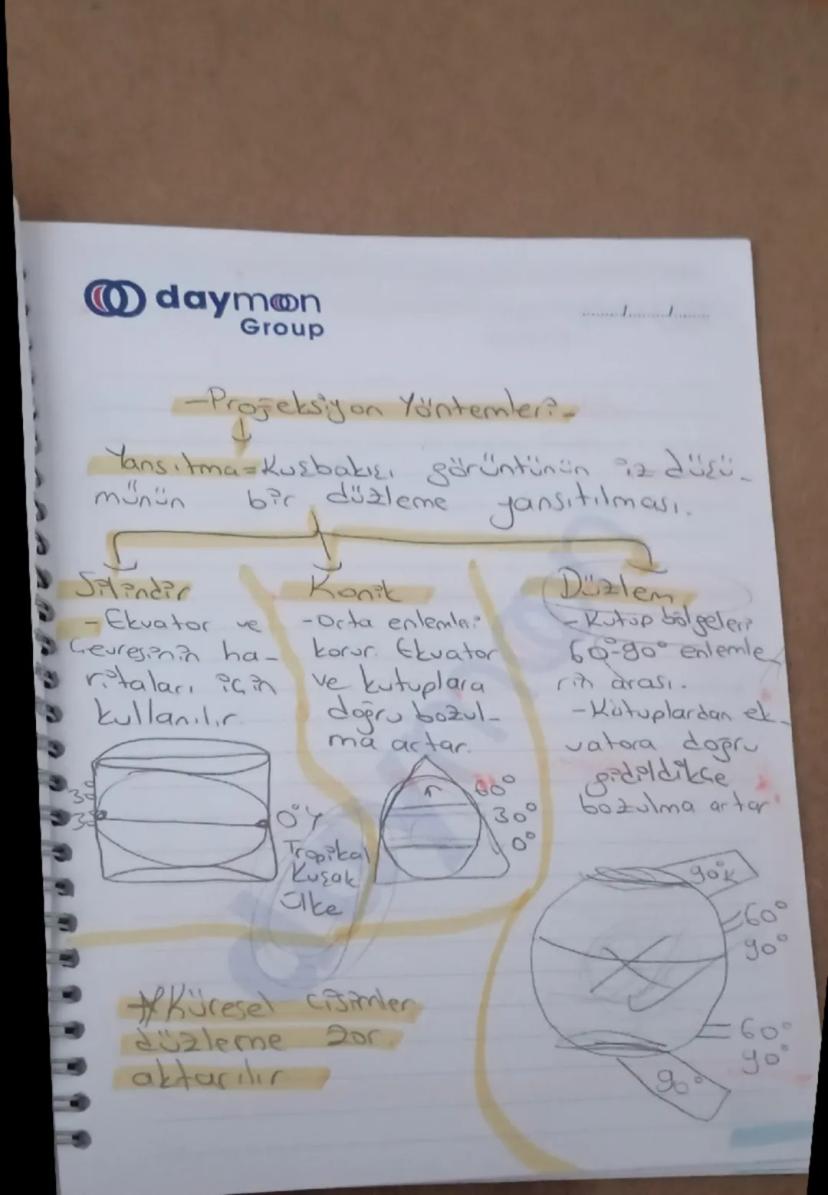 daymoon
Group
-Projeksiyon Yöntemleri-
Yansıtma=Kuşbakışı görüntünün iz düşü-
münün bir düzleme yansıtılması.
Silindir
-Ekvator ve
Çevresinin ha-
ritaları için
kullanılır
30
30
0°
Tropikal
Kuşak
ülke
Konik
-Orta enlemleri
korur. Ekvator
ve kutuplara
doğru bozul-
ma artar.
60°
30°
0°
Düzlem
-Kutup bölgeleri
60°-90° enlemle
rin arası.
-Kutuplardan ek-
vatora doğru
gidildikçe
bozulma artar
90°K
60°
90°
60°
90°
90°
*Küresel cisimler
düzleme zor
aktarılır
daymoon